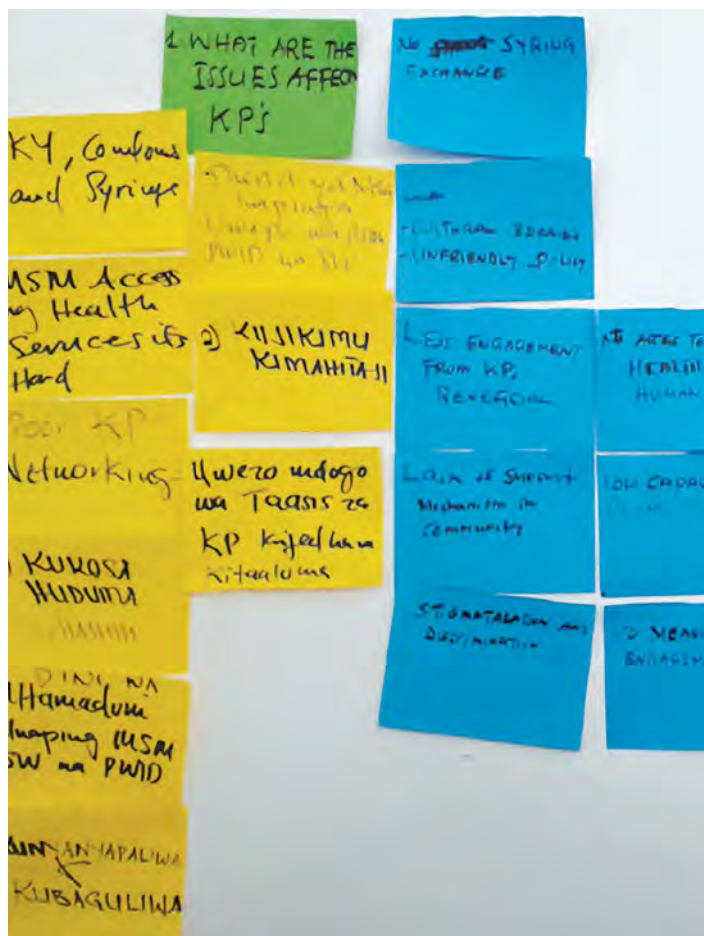 1. WHAT ARE THE
ISSUES AFFECT
KP's
KY, Condoms
and Syringe
MSM Access
ng Health
Services its
Hard
Poor KP
Networking
KUKOSA
HUDUMA
DINI NA
Hamadum
MSM
SW na PWID
KUNYANYAPALIWA
KUBAGULIWA
PWID na SW
2) KUJIKIMU
KIMAHITAJI
Uwezo mdogo
wa Taasis za
KP Kifedha na
Kitaaluma
No SYRING
EXCHANGE
- CULTURAL
- UNFRIENDLY POLICY
LESS ENGAGEMENT
FROM KPs
BENEFICIAL
Lack of Support
Mechanism in
Community
STIGMATALATION AND
DISCRIMINATION
HEALTH
HUMAN
LOW CAPAC
NO MEANI
ENGAGEM